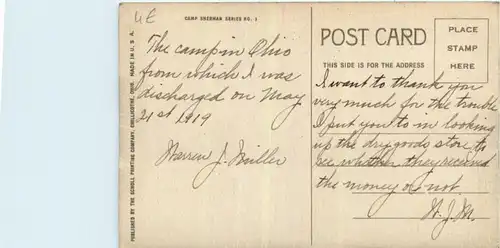 UE
CAMP SHERMAN SERIES NO. 1
The camp in Ohio
from which I was
discharged on May
21st 1919
Warren J. Miller
PUBLISHED BY THE SCHOLL PRINTING COMPANY, CHILLICOTHE, OHIO. MADE IN U. S. A.
POST CARD
THIS SIDE IS FOR THE ADDRESS
PLACE
STAMP
HERE
I want to thank you
very much for the trouble
I put you to in looking
up the dry goods store to
see whether they received
the money or not.
W. J. M.